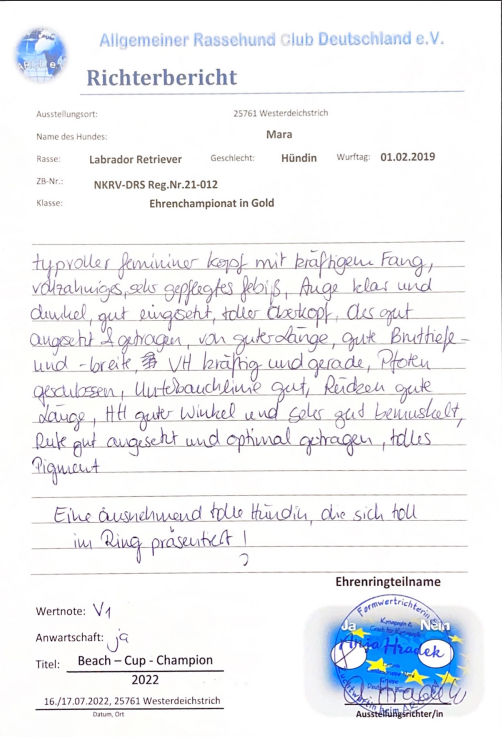 Allgemeiner Rassehund Club Deutschland e.V.
Richterbericht
Ausstellungsort: 25761 Westerdeichstrich
Name des Hundes: Mara
Rasse: Labrador Retriever Geschlecht: Hündin Wurftag: 01.02.2019
ZB-Nr.: NKRV-DRS Reg.Nr.21-012
Klasse: Ehrenchampionat in Gold
typvoller femininer Kopf mit kräftigem Fang,
vollzahniges, sehr gepflegtes Gebiß, Auge klar und
dunkel, gut eingesetzt, toller Oberkopf, gut
angesetzt & getragen, von guter Länge, gute Brusttiefe-
und -breite, VH kräftig und gerade, Pfoten
geschlossen, Unterbauchlinie gut, Rücken gute
Länge, HH guter Winkel und sehr gut bemuskelt,
Rute gut angesetzt und optimal getragen, tolles
Pigment
Eine ausnehmend tolle Hündin, die sich toll
im Ring präsentiert!
Ehrenringteilname
Wertnote: V1
Ja Nein
Anwartschaft: ja
Anja Hradek
Titel: Beach – Cup - Champion
2022
16./17.07.2022, 25761 Westerdeichstrich
Datum, Ort
Ausstellungsrichter/in
Formwertrichterin